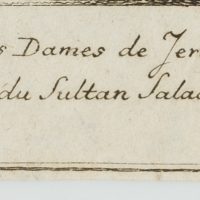 s Dames de Jer
du Sultan Salad